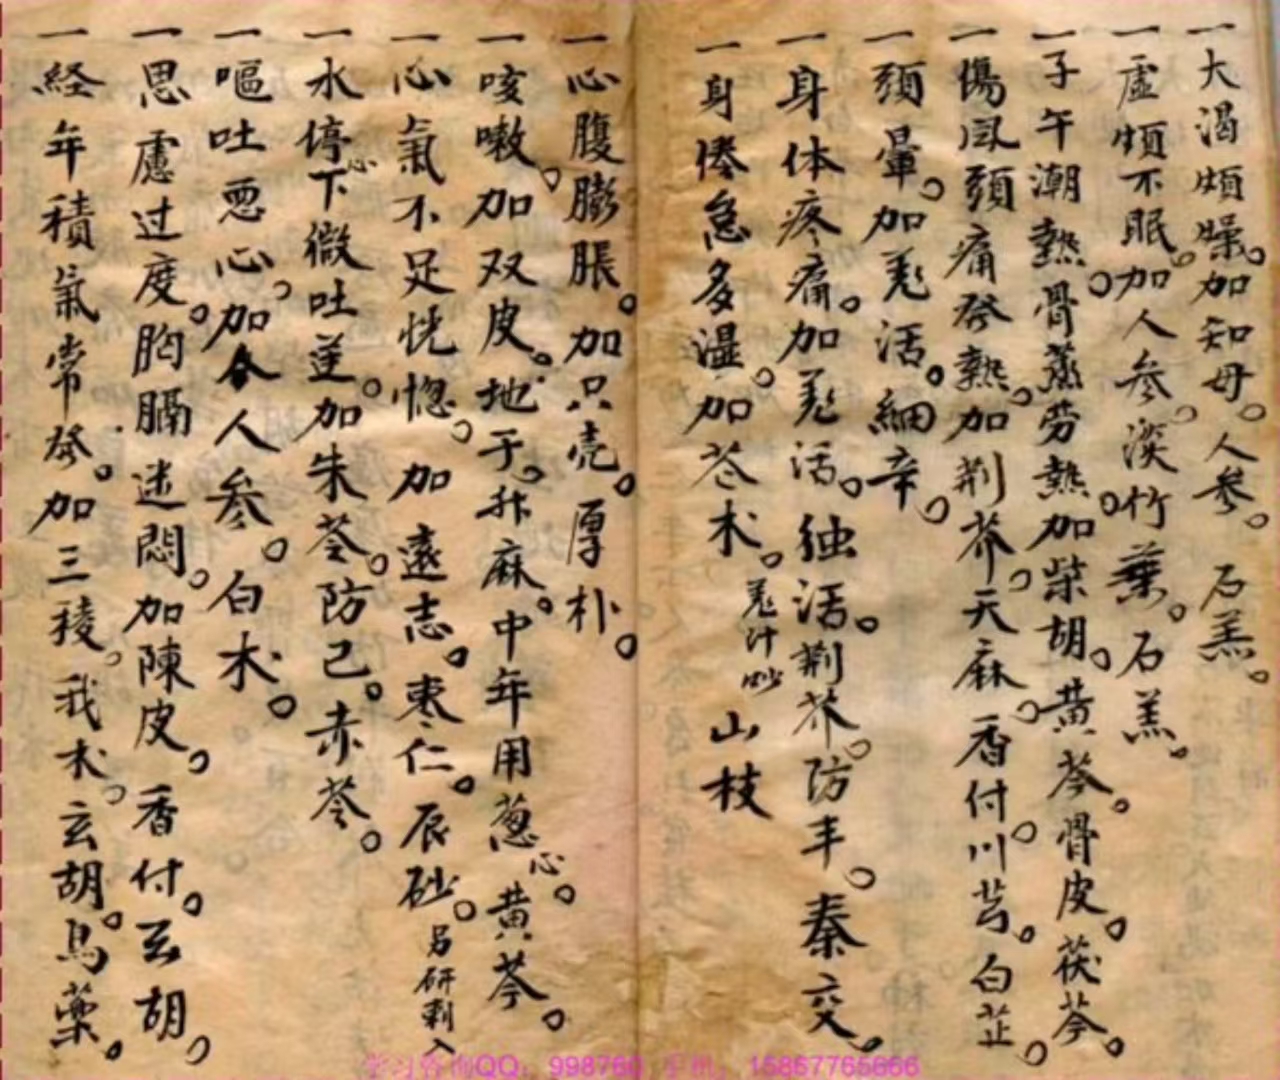 一大渴烦燥。加知母。人参。石羔。
一虚烦不眠。加人参。淡竹葉。石羔。
一子午潮熱。骨蒸劳熱。加柴胡。黄芩。骨皮。茯苓。
一傷风頭痛發熱。加荆芥。天麻。香付。川芎。白芷。
一頭暈。加羌活。細辛。
一身体疼痛。加羌活。独活。荆芥。防丰。秦交。
一身倦怠多湿。加苍术。羌汁炒 山枝
一心腹膨脹。加只壳。厚朴。
一咳嗽。加双皮。地于。升麻。中年用葱心。黄芩。
一心氣不足恍惚。加遠志。枣仁。辰砂。另研剩入
一水停心下微吐逆。加朱苓。防己。赤苓。
一嘔吐恶心。加人参。白术。
一思慮过度。胸膈迷悶。加陳皮。香付。玄胡。
一経年積氣常發。加三稜。我术。玄胡。烏藥。
学习咨询QQ：998760 手机：15867765666